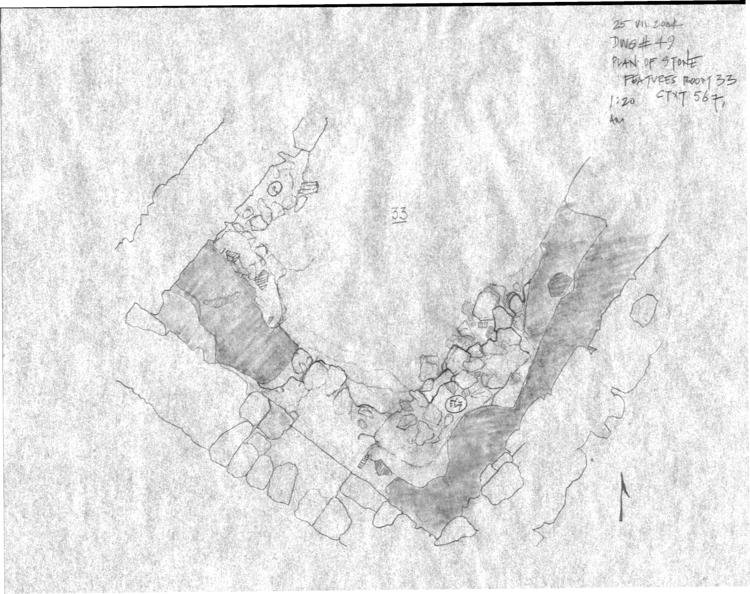 25 VII 2004
DWG # 49
PLAN OF STONE
FEATURES ROOM 33
1:20 CTXT 567,
AM
33